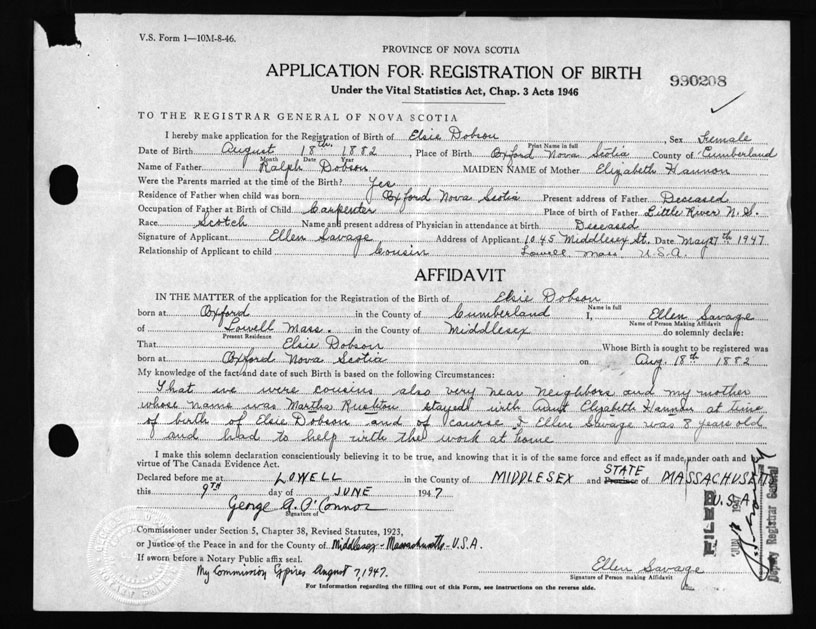 V.S. Form 1—10M-8-46.
PROVINCE OF NOVA SCOTIA
APPLICATION FOR REGISTRATION OF BIRTH
930208
Under the Vital Statistics Act, Chap. 3 Acts 1946
TO THE REGISTRAR GENERAL OF NOVA SCOTIA
I hereby make application for the Registration of Birth of Elsie Dobson Sex Female
Print Name in full
Date of Birth August 18th 1882, Place of Birth Oxford Nova Scotia County of Cumberland
Month Date Year
Name of Father Ralph Dobson MAIDEN NAME of Mother Elizabeth Hannon
Were the Parents married at the time of the Birth? Yes
Residence of Father when child was born Oxford Nova Scotia Present address of Father Deceased
Occupation of Father at Birth of Child Carpenter Place of birth of Father Little River N.S.
Race Scotch Name and present address of Physician in attendance at birth Deceased
Signature of Applicant Ellen Savage Address of Applicant 1045 Middlesex St. Date May 27th 1947
Relationship of Applicant to child Cousin Lowell Mass U.S.A.
AFFIDAVIT
IN THE MATTER of the application for the Registration of the Birth of Elsie Dobson
Name in full
born at Oxford in the County of Cumberland I, Ellen Savage
Name of Person Making Affidavit
of Lowell Mass. in the County of Middlesex do solemnly declare:
Present Residence
That Elsie Dobson Whose Birth is sought to be registered was
born at Oxford Nova Scotia on Aug. 18th 1882
My knowledge of the fact and date of such Birth is based on the following Circumstances:
That we were cousins also very near neighbors and my mother
whose name was Martha Rushton stayed with Aunt Elizabeth Hannon at time
of birth of Elsie Dobson and of course I Ellen Savage was 8 years old
and had to help with the work at home
I make this solemn declaration conscientiously believing it to be true, and knowing that it is of the same force and effect as if made under oath and
virtue of The Canada Evidence Act.
Declared before me at LOWELL in the County of MIDDLESEX and Province STATE of MASSACHUSETTS
this 9TH day of JUNE 1947 U.S.A.
George A. O'Connor
Signature of
Commissioner under Section 5, Chapter 38, Revised Statutes, 1923,
or Justice of the Peace in and for the County of Middlesex - Massachusetts - U.S.A.
If sworn before a Notary Public affix seal.
My Commission Expires August 7, 1947.
Ellen Savage
Signature of Person making Affidavit
For Information regarding the filling out of this Form, see instructions on the reverse side.
FILED
JUN 1947
Deputy Registrar General